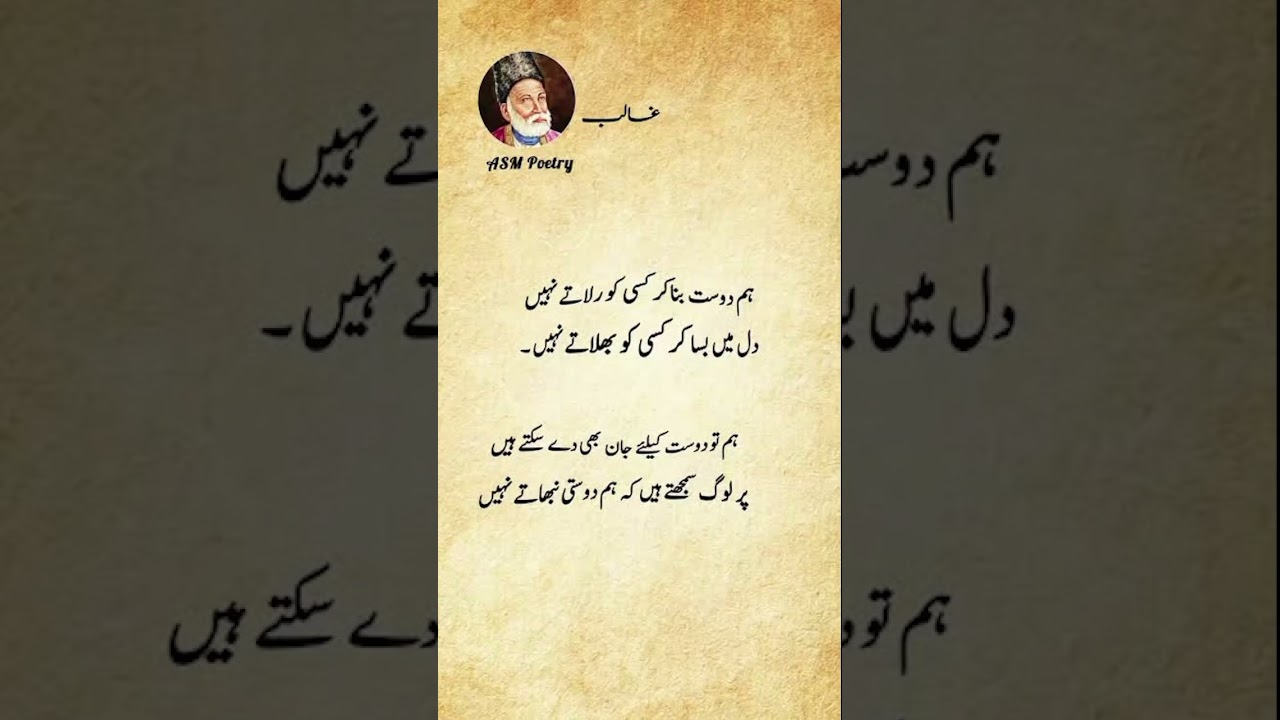 غالب
ASM Poetry
ہم دوست بناکر کسی کو رلاتے نہیں
دل میں بسا کر کسی کو بھلاتے نہیں۔
ہم تو دوست کیلئے جان بھی دے سکتے ہیں
پر لوگ سمجھتے ہیں کہ ہم دوستی نبھاتے نہیں